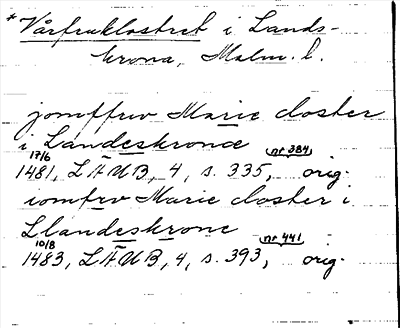 *Vårfruklostret i Lands-
krona, Malm. l.
jomffrw Marie closter
i Landeskrone
17/6 nr 384
1481, LÄUB, 4, s. 335, orig.
iomfrv Marie closter i
Llandeskrone
10/8 nr 441
1483, LÄUB, 4, s. 393, orig.